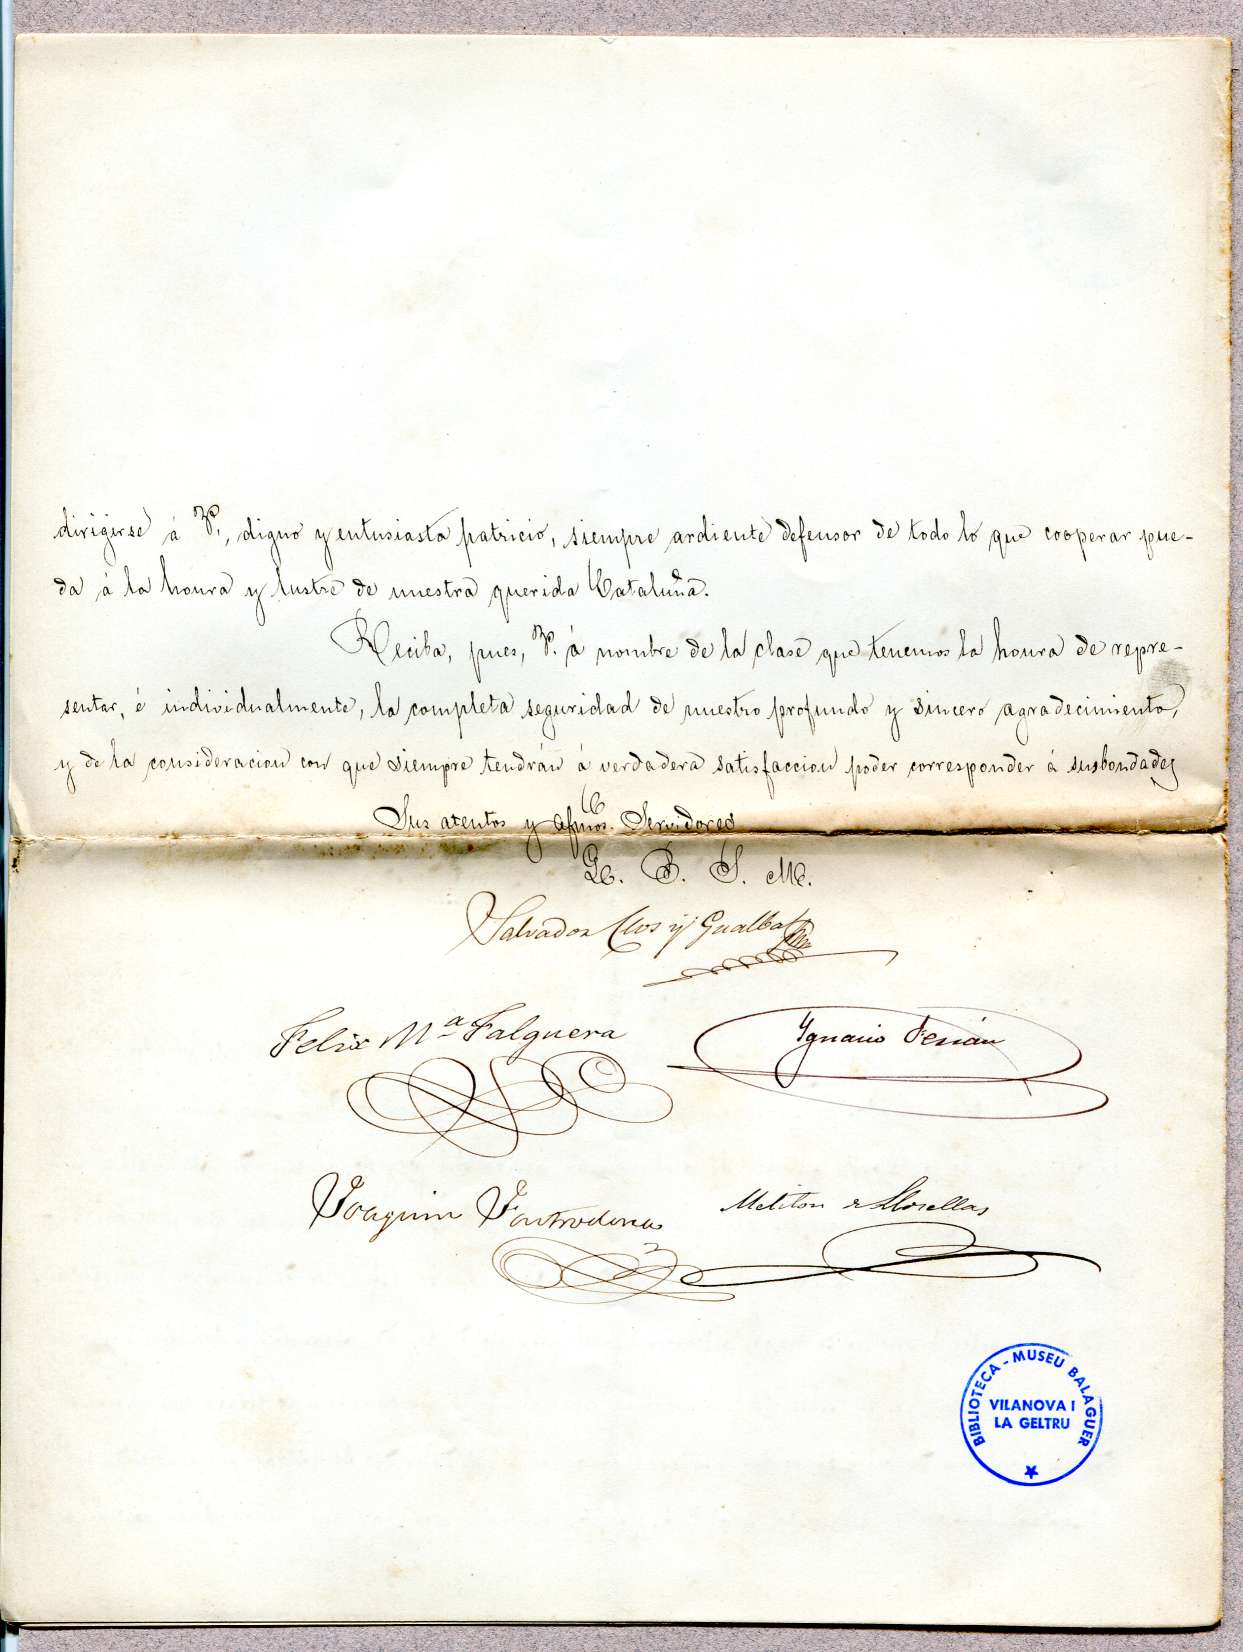 dirigirse á V., digno y entusiasta patricio, siempre ardiente defensor de todo lo que cooperar pue-
da á la honra y lustre de nuestra querida Cataluña.
Reciba, pues, V. á nombre de la clase que tenemos la honra de repre-
sentar, é individualmente, la completa seguridad de nuestro profundo y sincero agradecimiento,
y de la consideracion con que siempre tendrán á verdadera satisfaccion poder corresponder á sus bondades
Sus atentos y afmos. Servidores
Q. B. S. M.
Salvador Clos y Gualba
Felix Mª Falguera
Ygnacio
Joaquim Fontrodona
Meliton de Llosellas
BIBLIOTECA - MUSEU BALAGUER
VILANOVA I
LA GELTRU